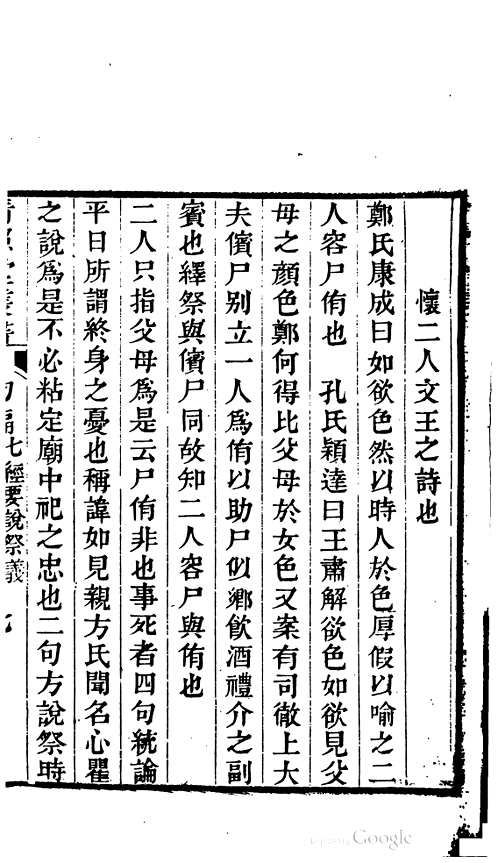 懷二人文王之詩也
鄭氏康成曰如欲色然以時人於色厚假以喻之二
人容尸侑也　孔氏穎達曰王肅解欲色如欲見父
母之顔色鄭何得比父母於女色又案有司徹上大
夫儐尸别立一人爲侑以助尸似鄉飲酒禮介之副
賓也繹祭與儐尸同故知二人容尸與侑也
二人只指父母爲是云尸侑非也事死者四句統論
平日所謂終身之憂也稱諱如見親方氏聞名心瞿
之說爲是不必粘定廟中祀之忠也二句方說祭時
七經要說祭義
Google